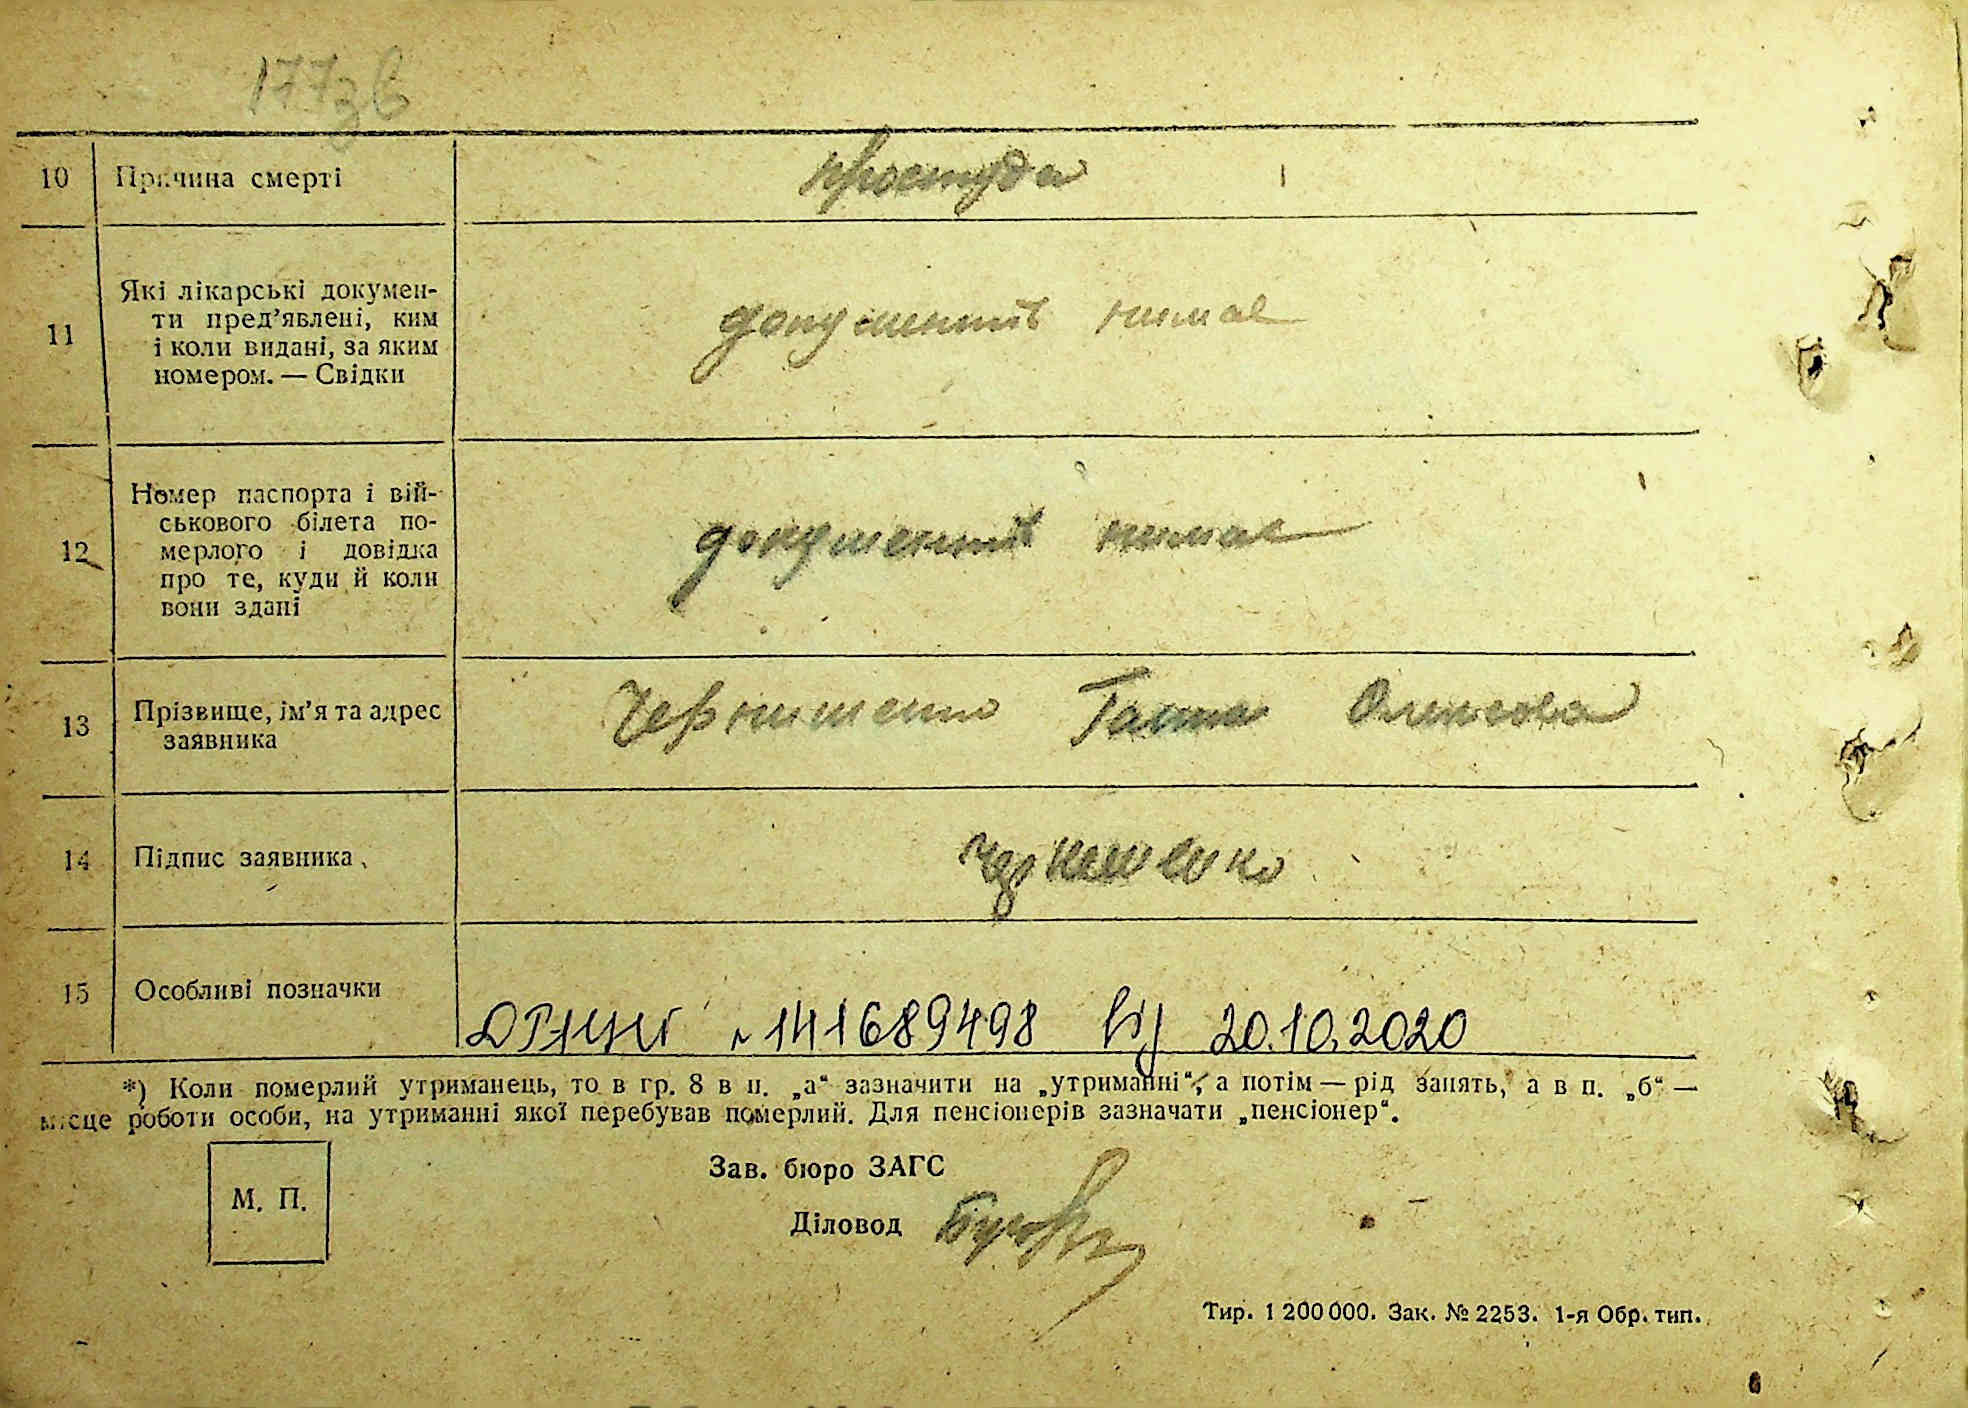 177зв
10 Причина смерті простуда
11 Які лікарські докумен-
ти пред’явлені, ким
і коли видані, за яким
номером. — Свідки
документів нимає
12 Номер паспорта і вій-
ськового білета по-
мерлого і довідка
про те, куди й коли
вони здані
документів нимає
13 Прізвище, ім’я та адрес
заявника
Чернишенко Ганна Олексеевна
14 Підпис заявника
15 Особливі позначки
ДРАЦСГ № 141689498 від 20.10.2020
*) Коли померлий утриманець, то в гр. 8 в п. „а“ зазначити на „утриманні“, а потім — рід занять, а в п. „б“ —
місце роботи особи, на утриманні якої перебував померлий. Для пенсіонерів зазначати „пенсіонер“.
М. П.
Зав. бюро ЗАГС
Діловод
Тир. 1 200 000. Зак. № 2253. 1-я Обр. тип.